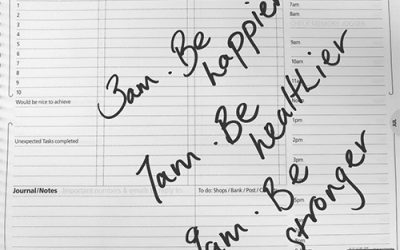 1
2
3
4
5
6
7
8
9
10
Would be nice to achieve
Unexpected Tasks completed
Journal/Notes Important numbers & emails
To do: Shops / Bank / Post /
3am. Be
happier
7am. Be
healthier
9am. Be
stronger
7am
8am
9am
10am
1pm
2pm
3pm
5pm